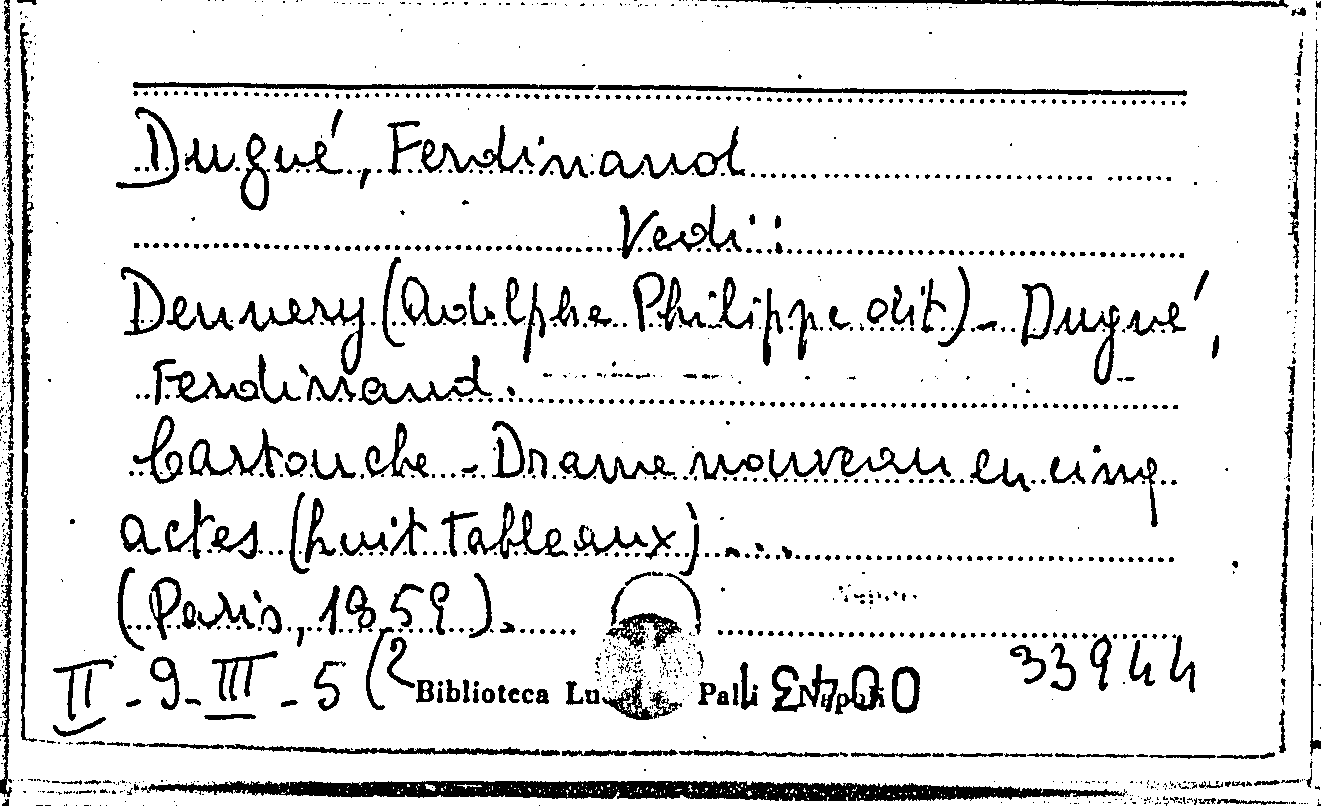 Dugué, Ferdinand
Vedi:
Dennery (Adolphe Philippe dit) - Dugué,
Ferdinand.
Cartouche - Drame nouveau en cinq
actes (huit tableaux)...
(Paris, 1859).
II-9-III-5(2
Biblioteca Palli Napoli
33944